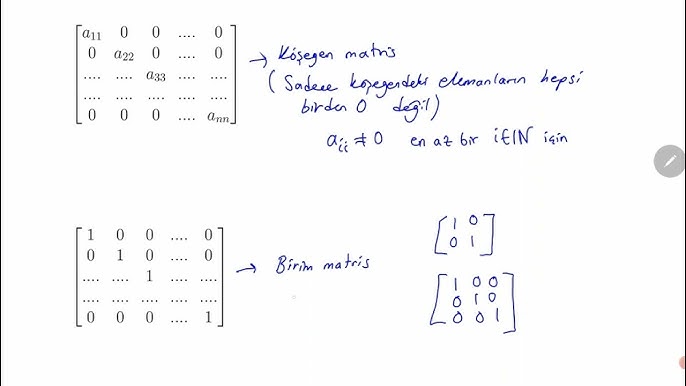 a₁₁ 0 0 .... 0
0 a₂₂ 0 .... 0
.... .... a₃₃ .... ....
.... .... .... .... ....
0 0 0 .... aₙₙ
→ Köşegen matris
(Sadece köşegendeki elemanların hepsi
birden 0 değil)
aᵢᵢ ≠ 0 en az bir i∈ℕ için
1 0 0 .... 0
0 1 0 .... 0
.... .... 1 .... ....
.... .... .... .... ....
0 0 0 .... 1
→ Birim matris
1 0
0 1
1 0 0
0 1 0
0 0 1